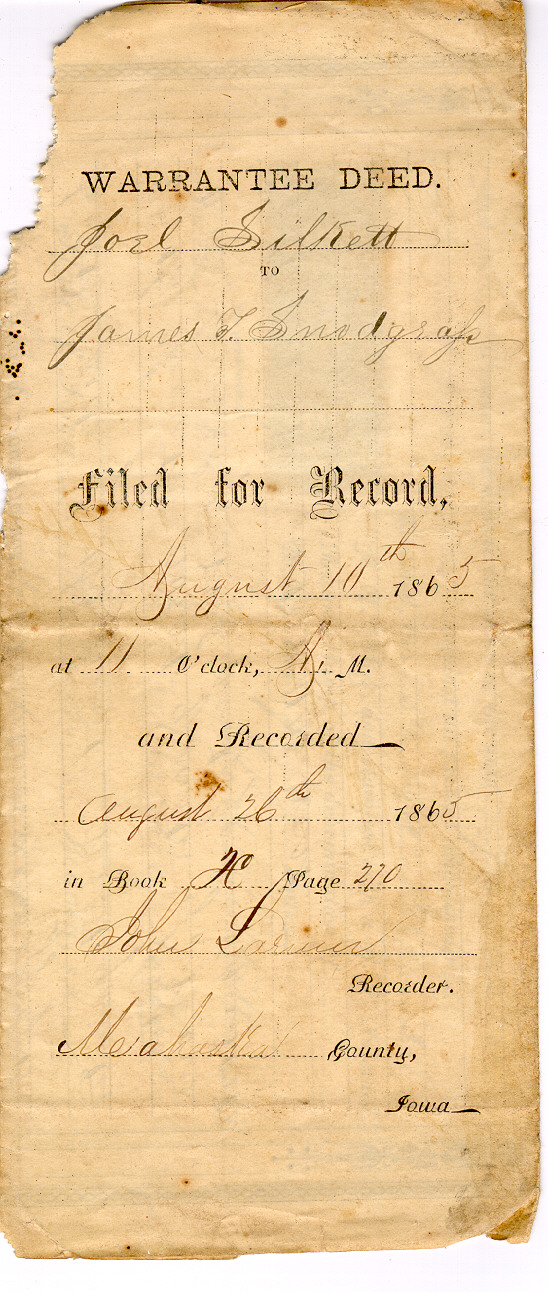 WARRANTEE DEED.
Joel Silkett
TO
James T. Snodgrass
Filed for Record,
August 10th 1865
at 11 O'clock, A. M.
and Recorded
August 26th 1865
in Book Page 270
John
Recorder.
Mahaska County,
Iowa